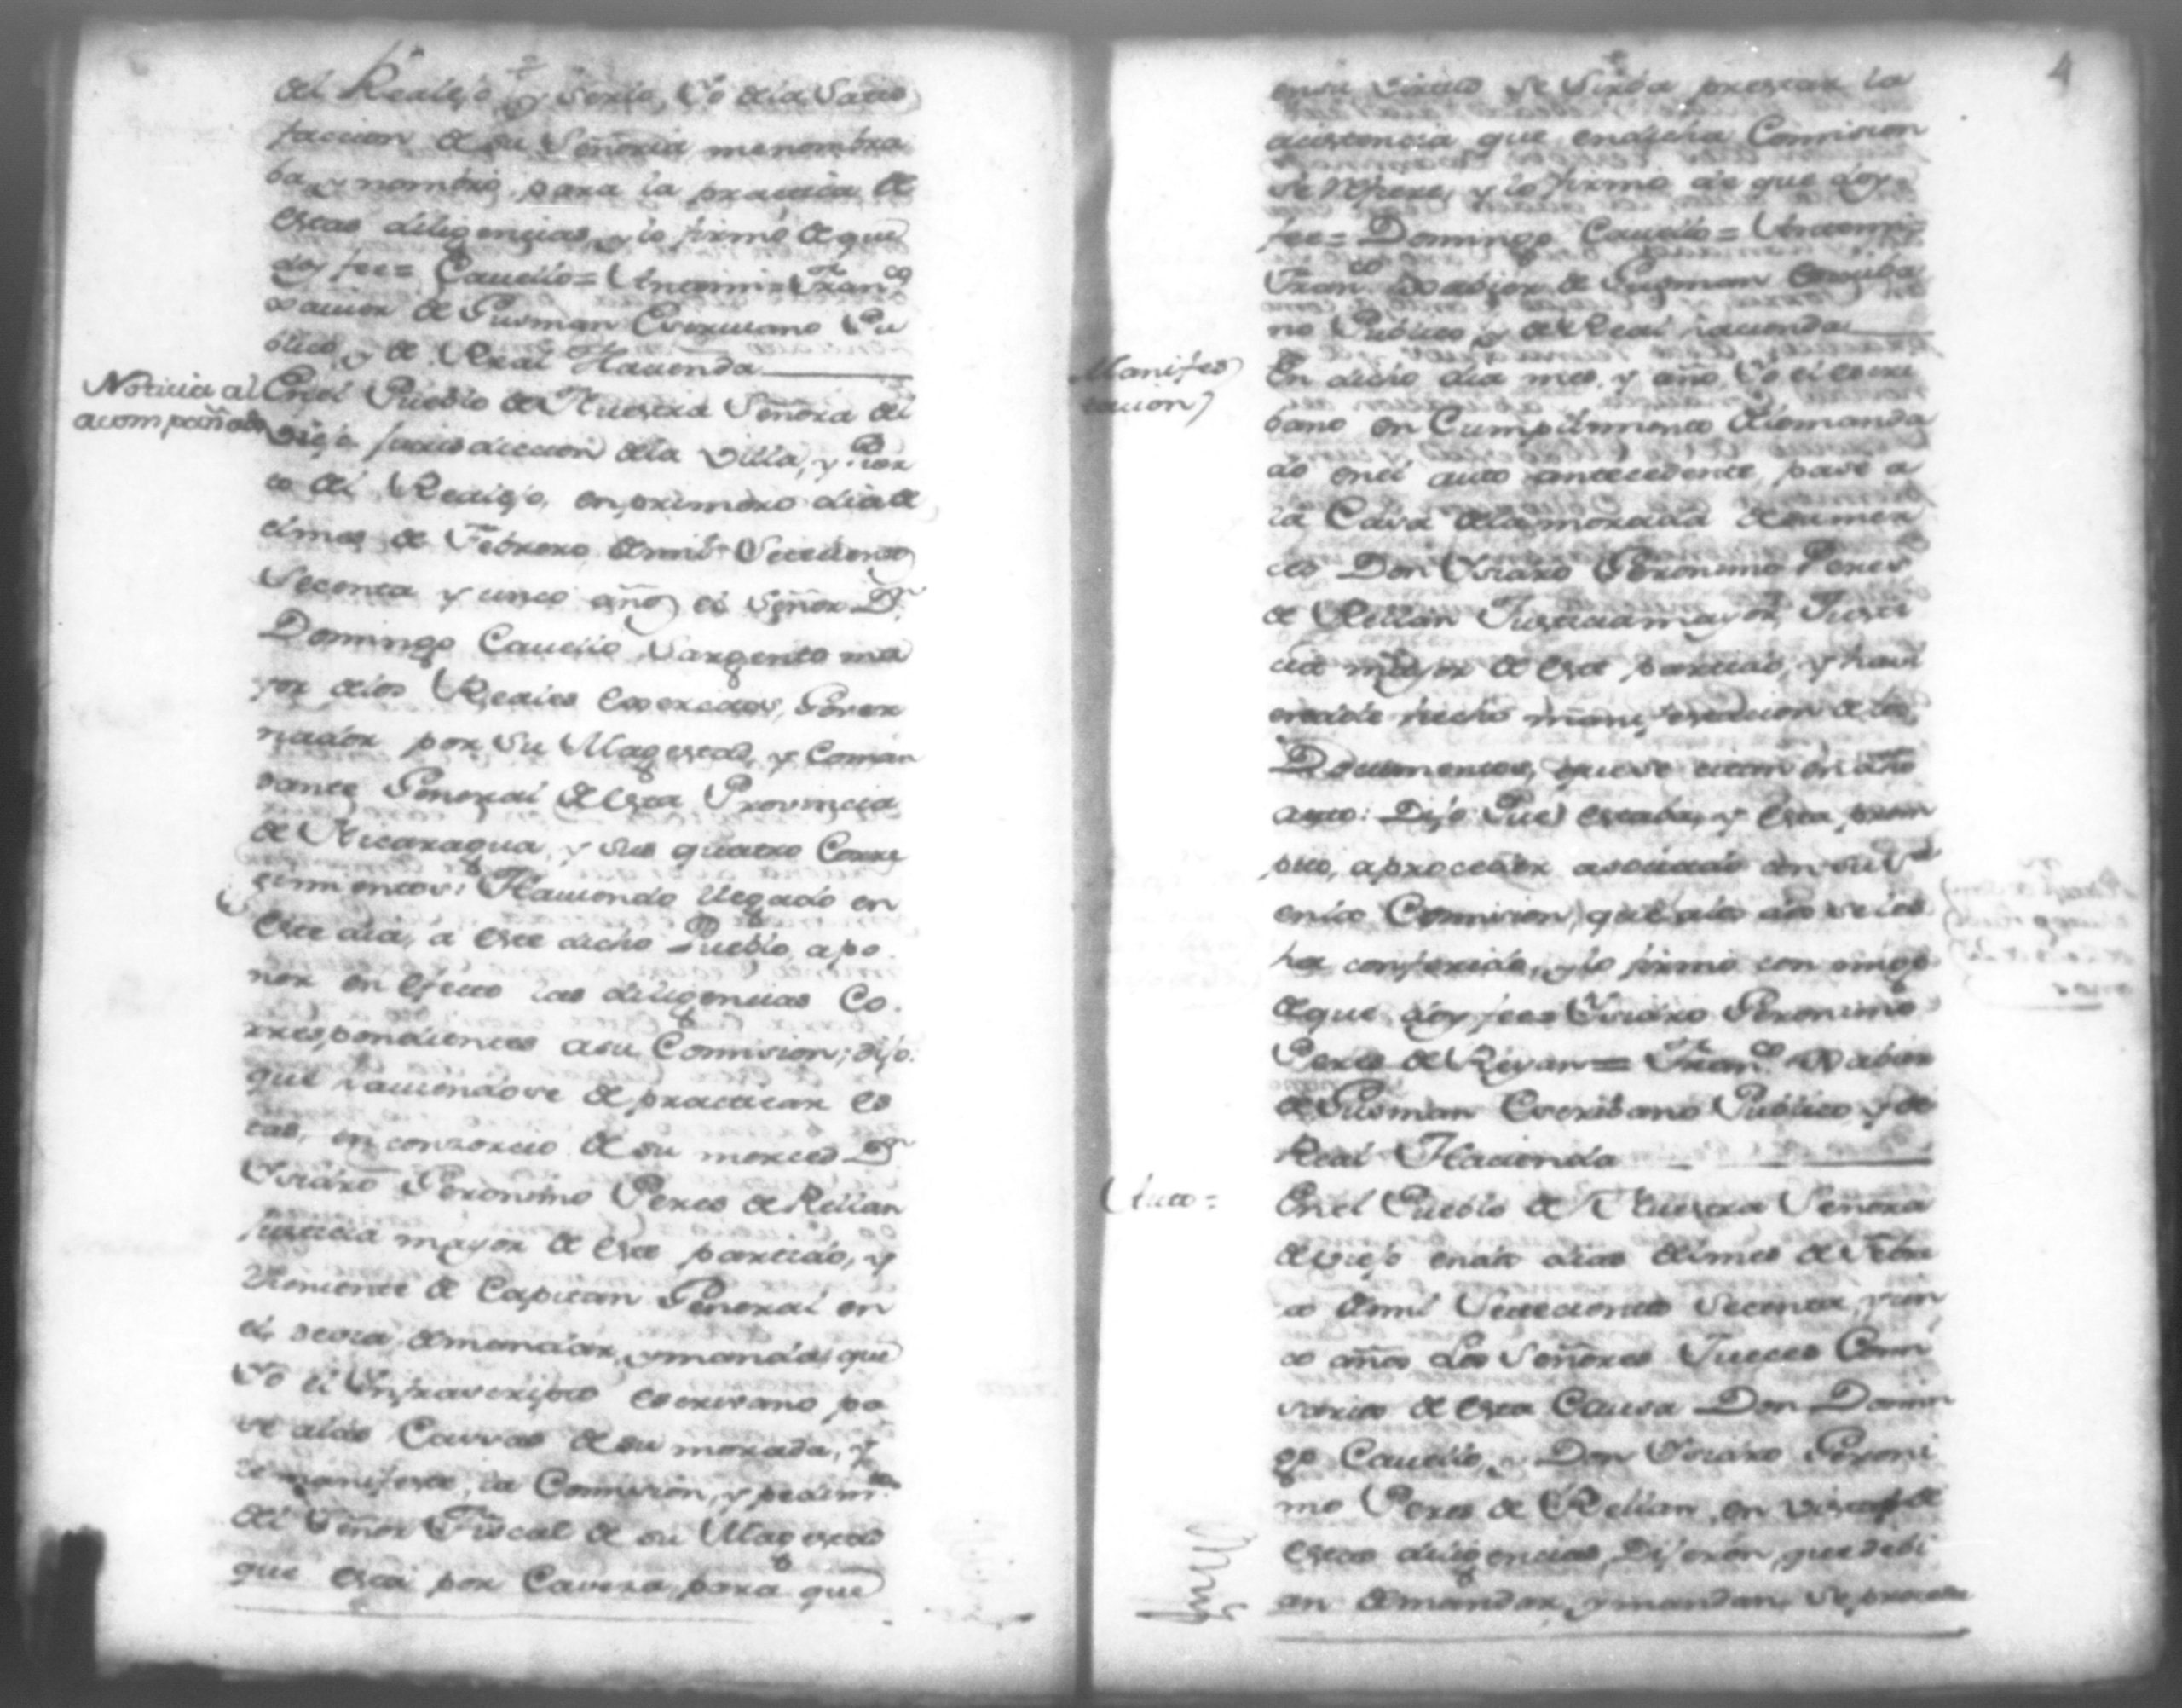 del Realejo, y serlo, Yo dela Satis
faccion de su Señoria menombra
ba, y nombró, para la practica de
estas diligencias, y lo firmó de que
doy fee= Cavello= Antemi= Fran.co
xavier de Gusman Escriuano Pu
blico, y de Real Hacienda
Noticia al
acompañado
Enel Pueblo de Nuestra Señora del
Viejo Jurisdiccion dela Villa, y Puer
to del Realejo, en primero dia de
el mes de Febrero demil Setecientos
Secenta y cinco años el Señor D.n
Domingo Cavello Sargento ma
yor delos Reales Exercitos, Gover
nador por Su Magestad, y Coman
dante General de esta Provincia
de Nicaragua, y sus quatro Corre
gimientos: Haviendo llegado en
este dia, a este dicho Pueblo, apo
ner en efecto las diligencias Co
rrespondientes asu Comision; dijo:
que haciendose de practicar es
tas, en consorcio de su merced D.n
Isidro Geronimo Peres de Rellan
Justicia mayor de este partido, y
Theniente de Capitan General en
el, devia demandar, y mandó, que
Yo el Infrascripto escrivano pa
se alas Cassas de su morada, y
le manifieste, la Comision, y pedim.to
del Señor Fiscal de su Magestad
que está por Cavesa, para que
4
ensu Virtud se sirba prestar la
asistencia que endicha Comision
se refiere, y lo firmó de que doy
fee= Domingo Cavello= Antemi=
Fran.co Xabier de Gusman Escriba
no Publico y de Real Hacienda
Manifes
tacion
En dicho dia mes, y año, Yo el escri
bano en Cumplimiento delomanda
do enel auto antecedente, pasé a
la Casa dela morada desumer
ced Don Isidro Geronimo Peres
de Rellan Justicia mayor, Justi
cia mayor de este partido, y havi
endole hecho manifestacion de los
Documentos, que se citan en dho
auto: Dijo Que estaba, y esta prom
pto, a proceder asociado con su S.ª
enla Comision, que alos dos se les
ha conferido, y lo firmó con migo
de que doy fee= Isidro Geronimo
Peres de Reyan= Fran.co Xabier
de Gusman Escribano Publico y de
Real Hacienda
Auto=
Enel Pueblo de Nuestra Señora
del Viejo dias delmes de Febre
ro demil Setecientos Secenta, y cin
co años Los Señores Jueces Comi
sarios de esta Causa Don Domin
go Cavello, y Don Isidro Geroni
mo Peres de Rellan, en vista de
estas diligencias, Dijeron, que debi
an demandar, y mandan, se proceda